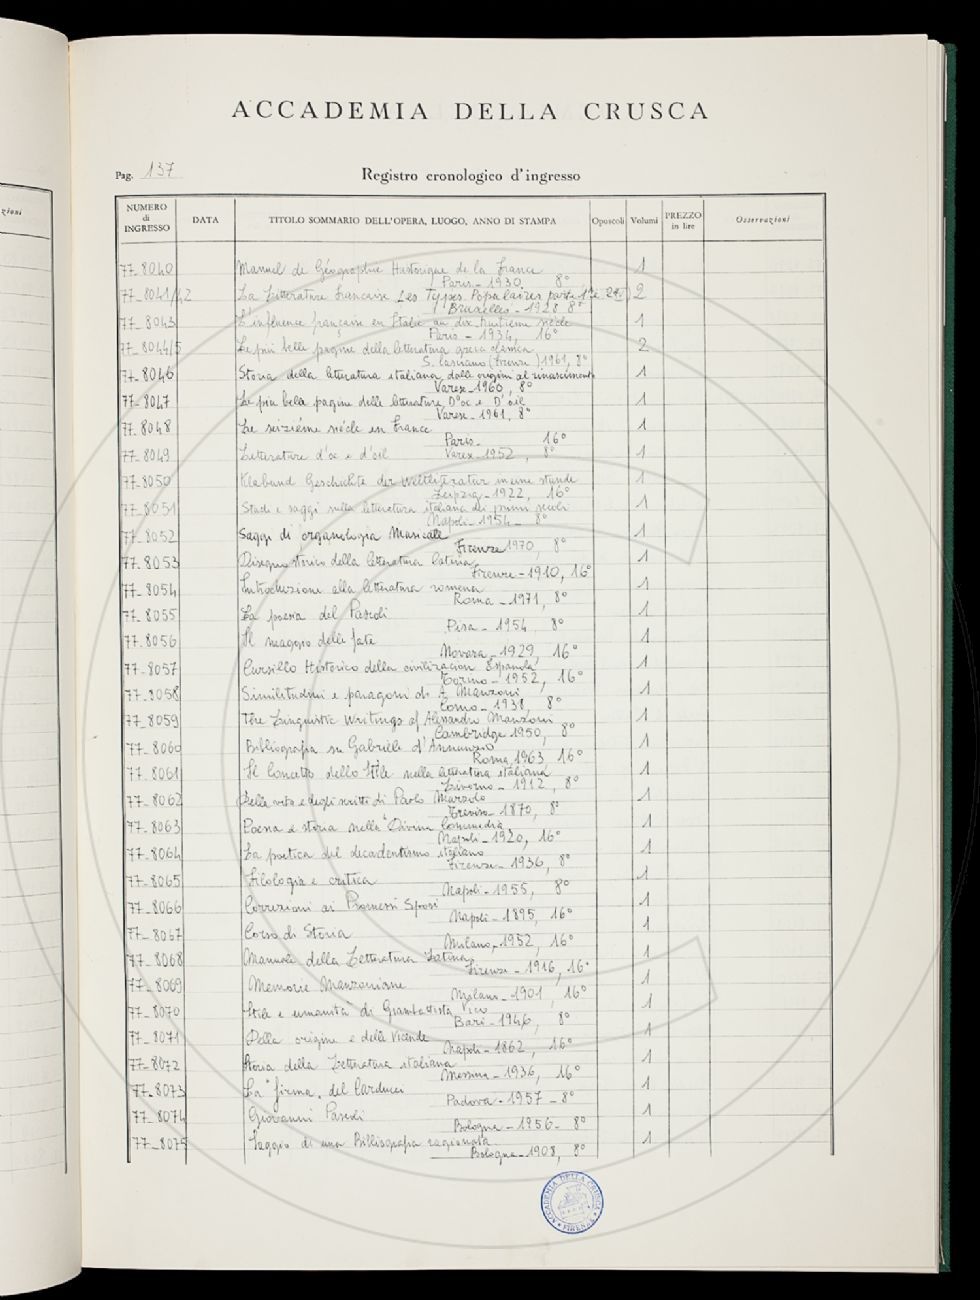 ACCADEMIA DELLA CRUSCA
Pag. 137
Registro cronologico d'ingresso
zioni
NUMERO di INGRESSO DATA TITOLO SOMMARIO DELL'OPERA, LUOGO, ANNO DI STAMPA Opuscoli Volumi PREZZO in lire Osservazioni
77_8040 Manuel de Géographie Historique de la France 1
Paris_1930, 8°
77_8041/42 La Litterature francaise Les Types Populaires parte 1e 2e 2
Bruxelles_1928 8°
77_8043 L'influence française en Italie au dix huitieme siècle 1
Paris_1934, 16°
77_8044/5 Le più belle pagine della letteratura greca classica 2
S. Casciano (Firenze) 1961, 8°
77_8046 Storia della letteratura italiana dalle origini al rinascimento 1
Varese_1960, 8°
77_8047 Le più bela pagine delle letterature D'oc e D'oïl 1
Varese_1961, 8°
77_8048 Le seizième siécle en France 1
Paris_ 16°
77_8049 Letterature d'oc e d'oil 1
Varese_1952, 8°
77_8050 Klabund Geschichte der Weltliteratur in eine stunde 1
Leipzig_1922, 16°
77_8051 Studi e saggi sulla letteratura italiana dei primi secoli 1
Napoli_1954_ 8°
77_8052 Saggi di organologia Musicale 1
Firenze 1970, 8°
77_8053 Disegno storico della letteratura latina 1
Firenze_1910, 16°
77_8054 Introduzione alla letteratura romena 1
Roma_1971, 8°
77_8055 La poesia del Pascoli 1
Pisa_1954, 8°
77_8056 Il maggio delle fate 1
Novara_1929, 16°
77_8057 Cursillo Historico della civilizacion Española 1
Torino_1952, 16°
77_8058 Similitudini e paragoni di A. Manzoni 1
Como_1938, 8°
77_8059 The Linguistic Writings of Alessandro Manzoni 1
Cambridge 1950, 8°
77_8060 Bibliografia su Gabriele d'Annunzio 1
Roma 1963, 16°
77_8061 Il Concetto dello Stile nella letteratura italiana 1
Livorno_1912, 8°
77_8062 Della vita e degli scritti di Paolo Marzolo 1
Treviso_1870, 8°
77_8063 Poesia e storia nella "Divina Commedia" 1
Napoli_1920, 16°
77_8064 La poetica del decadentismo italiano 1
Firenze_1936, 8°
77_8065 Filologia e critica 1
Napoli_1955, 8°
77_8066 Correzioni ai Promessi Sposi 1
Napoli_1895, 16°
77_8067 Corso di Storia 1
Milano_1952, 16°
77_8068 Manuale della Letteratura Latina 1
Firenze_1916, 16°
77_8069 Memorie Manzoniane 1
Milano_1901, 16°
77_8070 Stile e umanità di Giambattista Vico 1
Bari_1946, 8°
77_8071 Della origine e delle vicende 1
Napoli_1862, 16°
77_8072 Storia della Letteratura italiana 1
Messina_1936, 16°
77_8073 La "firma" del Carducci 1
Padova_1957_8°
77_8074 Giovanni Pascoli 1
Bologna_1956_ 8°
77_8075 Saggio di una Bibliografia ragionata 1
Bologna_1908, 8°
ACCADEMIA DELLA CRUSCA * FIRENZE *